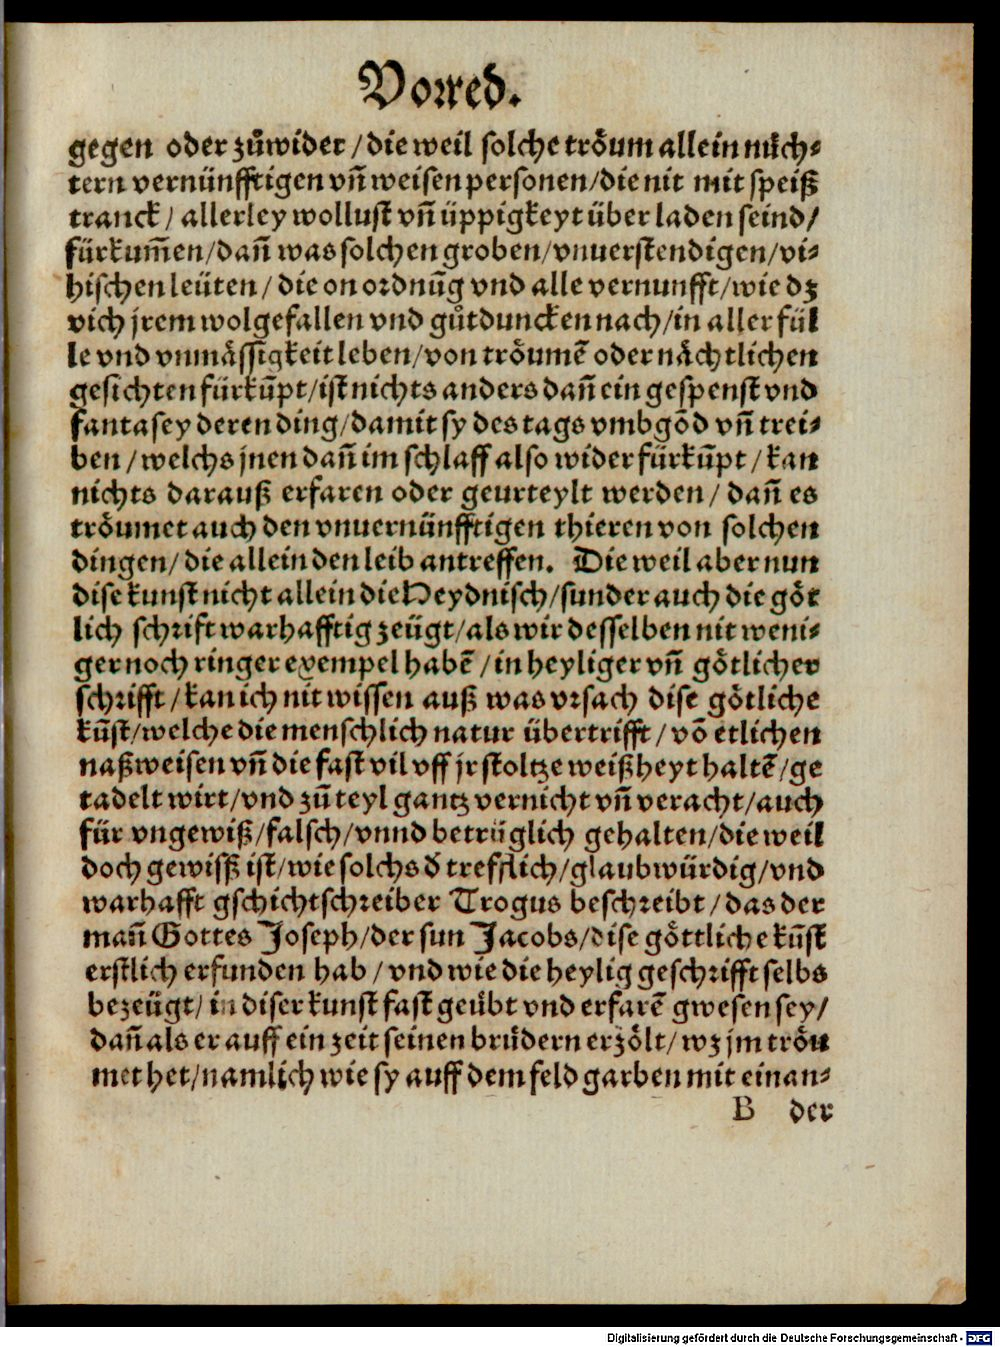 Vorred.
gegen oder zůwider / die weil solche tröum allein nüch⸗
tern vernünfftigen vñ weisen personen / die nit mit speiß
tranck / allerley wollust vñ üppigkeyt über laden seind /
fürkum̃en / dañ was solchen groben / vnuerstendigen / vi⸗
hischen leüten / die on ordnũg vnd alle vernunfft / wie dz
vich jrem wolgefallen vnd gůtduncken nach / in aller fül
le vnd vnmässigkeit leben / von tröumẽ oder nächtlichen
gesichten fürkũpt / ist nichts anders dañ ein gespenst vnd
fantasey deren ding / damit sy des tags vmbgõd vñ trei⸗
ben / welchs jnen dañ im schlaff also wider fürkũpt / kan
nichts darauß erfaren oder geurteylt werden / dañ es
tröumet auch den vnuernünfftigen thieren von solchen
dingen / die allein den leib antreffen. Die weil aber nun
dise kunst nicht allein die Heydnisch / sunder auch die göt
lich schrift warhafftig zeügt / als wir desselben nit weni⸗
ger noch ringer exempel habẽ / in heyliger vñ götlicher
schrifft / kan ich nit wissen auß was vrsach dise götliche
kũst / welche die menschlich natur übertrifft / võ etlichen
naßweisen vñ die fast vil vff jr stoltze weißheyt haltẽ / ge
tadelt wirt / vnd zũ teyl gantz vernicht vñ veracht / auch
für vngewiß / falsch / vnnd betrüglich gehalten / die weil
doch gewissz ist / wie solchs d̕ trefflich / glaubwürdig / vnd
warhafft gschichtschreiber Trogus beschreibt / das der
mañ Gottes Joseph / der sun Jacobs / dise göttliche kũst
erstlich erfunden hab / vnd wie die heylig geschrifft selbs
bezeügt / in diser kunst fast geübt vnd erfarẽ gwesen sey /
dañ als er auff ein zeit seinen brüdern erzölt / wz jm tröu
met het / namlich wie sy auff dem feld garben mit einan⸗
B der
Digitalisierung gefördert durch die Deutsche Forschungsgemeinschaft - DFG